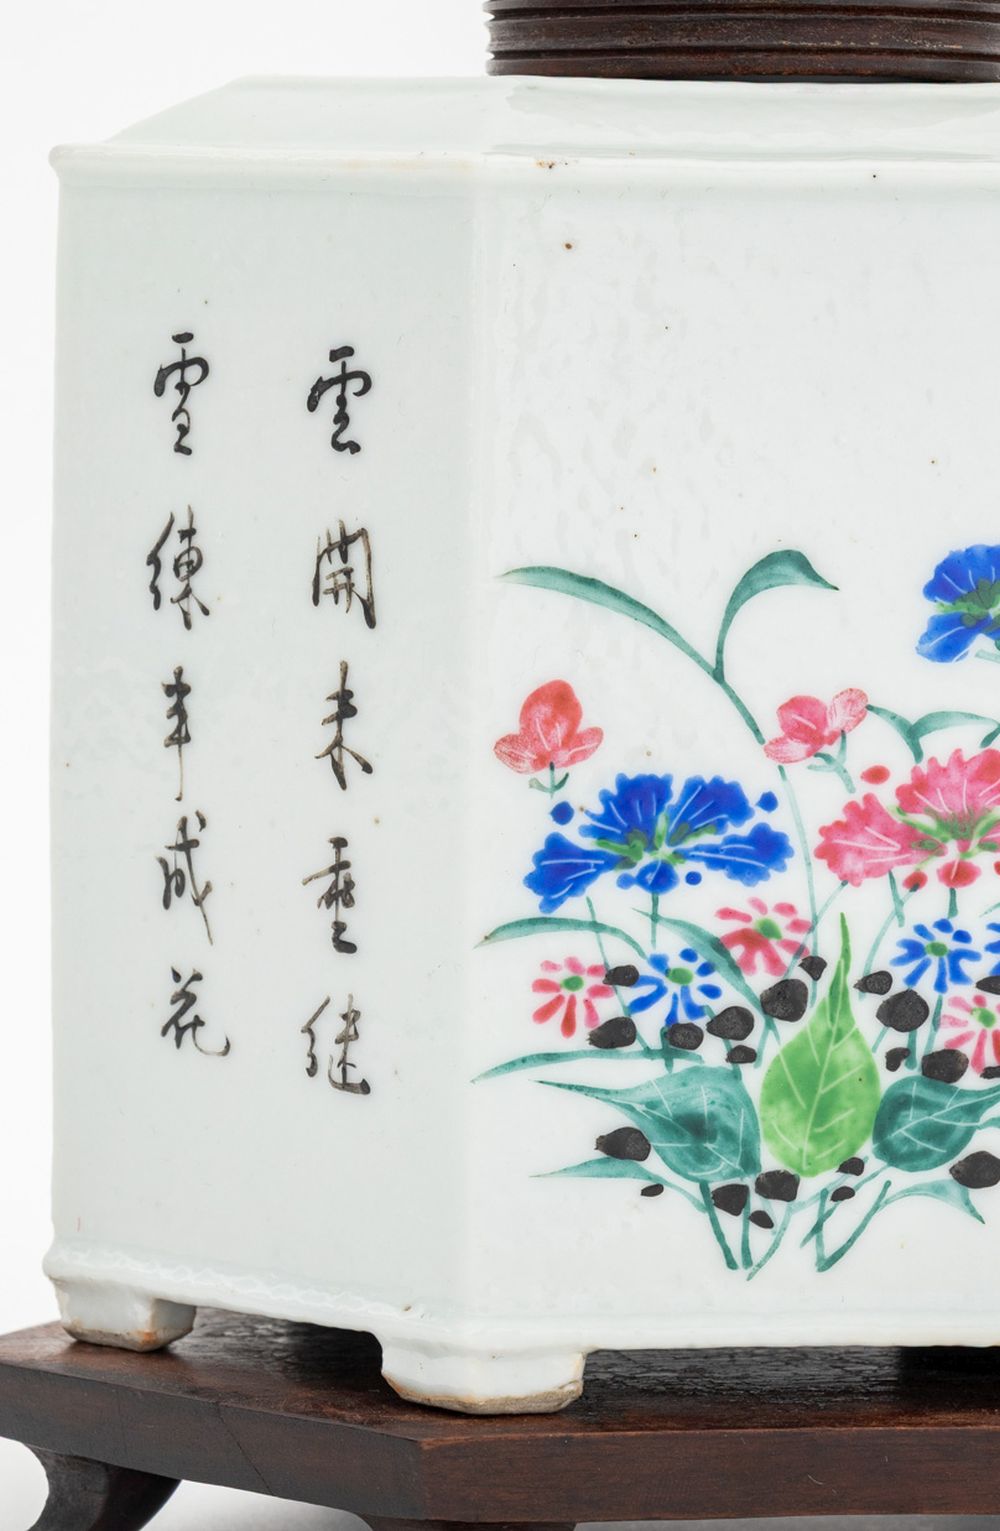 雲開未垂継
雪練半成花